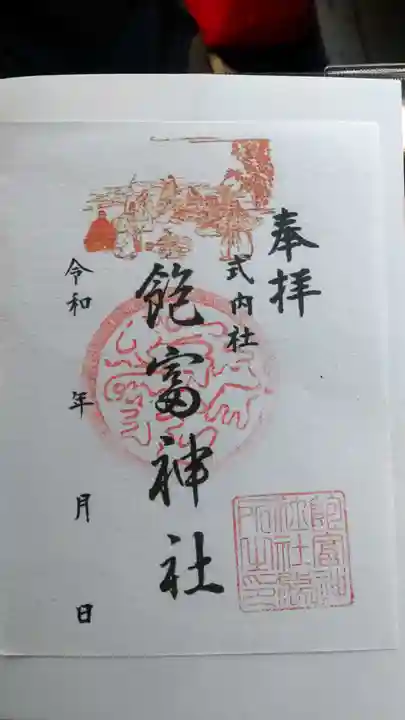 奉拝
式内社
飽富神社
令和 年 月 日
飽富神社務所之印